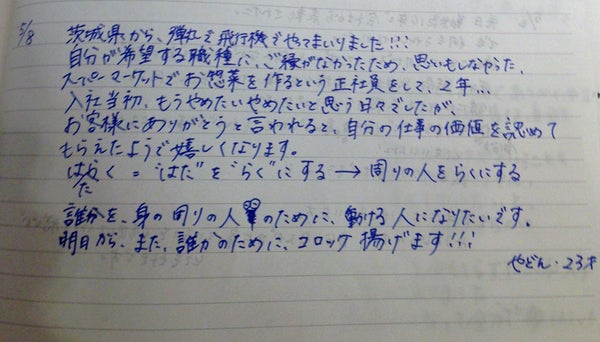 5/8
茨城県から、弾丸で飛行機でやってまいりました!!!
自分が希望する職種に、ご縁がなかったため、思いもしなかった、
スーパーマーケットでお惣菜を作るという正社員をして、2年...
入社当初、もうやめたいやめたいと思う日々でしたが、
お客様にありがとうと言われると、自分の仕事の価値を認めて
もらえたようで嬉しくなります。
はたらく = "はた"を"らく"にする → 周りの人をらくにする
を、身の周りの人のために、動ける人になりたいです。
明日から、また、誰かのために、コロッケ揚げます!!!
やどん・23才